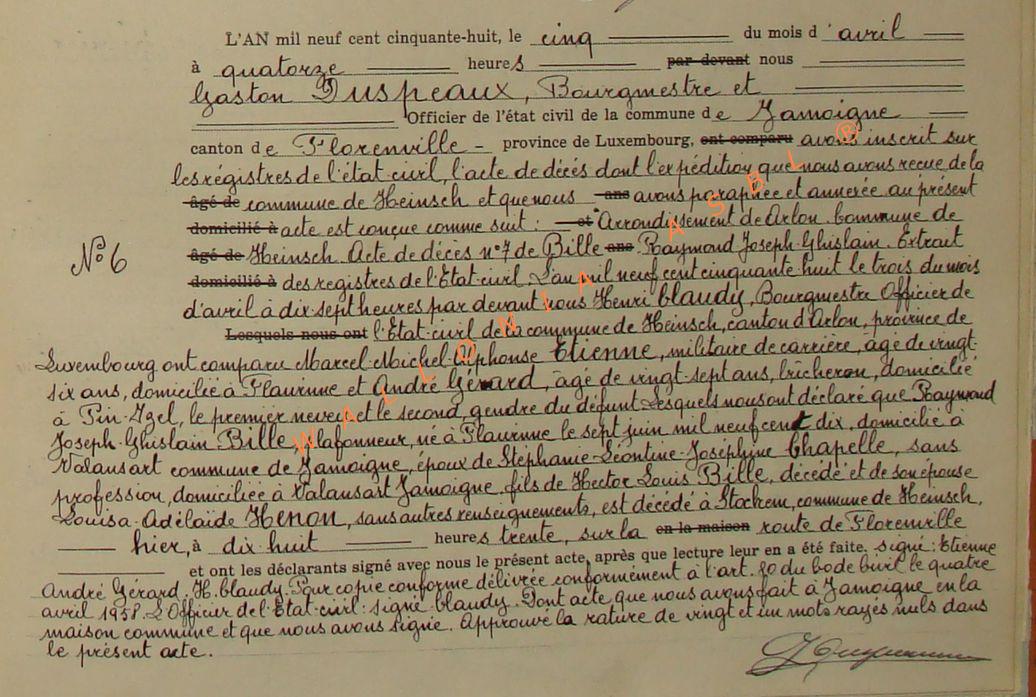 L'AN mil neuf cent cinquante-huit, le cinq du mois d'avril
à quatorze heures par devant nous
Gaston Duspeaux, Bourgmestre et
Officier de l'état civil de la commune de Jamoigne
canton de Florenville - province de Luxembourg, ont comparu avons inscrit sur
les régistres de l'état-civil, l'acte de décès dont l'expédition que nous avons recue de la
âgé de commune de Heinsch et que nous ans avons paraphée et annexée au présent
domicilié à acte est conçue comme suit : et Arrondissement de Arlon. Commune de
N° 6
âgé de Heinsch. Acte de décès n° 7 de Bille ans Raymond Joseph-Ghislain. Extrait
domicilié à des registres de l'Etat-civil. L'an mil neuf cent cinquante huit le trois du mois
d'avril à dix-sept heures par devant nous Henri Claudy, Bourgmestre Officier de
Lesquels nous ont l'Etat-civil de la commune de Heinsch, canton d'Arlon, province de
Luxembourg ont comparu Marcel-Michel-Alphonse Etienne, militaire de carrière, âgé de vingt-
six ans, domicilié à Flaurinne et André Gérard, âgé de vingt-sept ans, bûcheron, domicilié
à Pin-Izel, le premier neveu et le second, gendre du défunt. Lesquels nous ont déclaré que Raymond
Joseph-Ghislain Bille, plafonneur, né à Flaurinne le sept juin mil neuf cent dix, domicilié à
Valansart commune de Jamoigne, époux de Stéphanie-Léontine-Joséphine Chapelle, sans
profession, domiciliée à Valansart Jamoigne, fils de Hector Louis Bille, décédé et de son épouse
Louisa-Adélaïde Henon, sans autres renseignements, est décédé à Stockem, commune de Heinsch,
hier, à dix-huit heures trente, sur la en la maison route de Florenville
et ont les déclarants signé avec nous le présent acte, après que lecture leur en a été faite. signé : Etienne
André Gérard. H. Claudy. Pour copie conforme délivrée conformément à l'art. 80 du Code Civil le quatre
avril 1958. L'Officier de l'Etat-civil : signé Claudy. Dont acte que nous avons fait à Jamoigne en la
maison commune et que nous avons signé. Approuvé la rature de vingt et un mots rayés nuls dans
le présent acte.